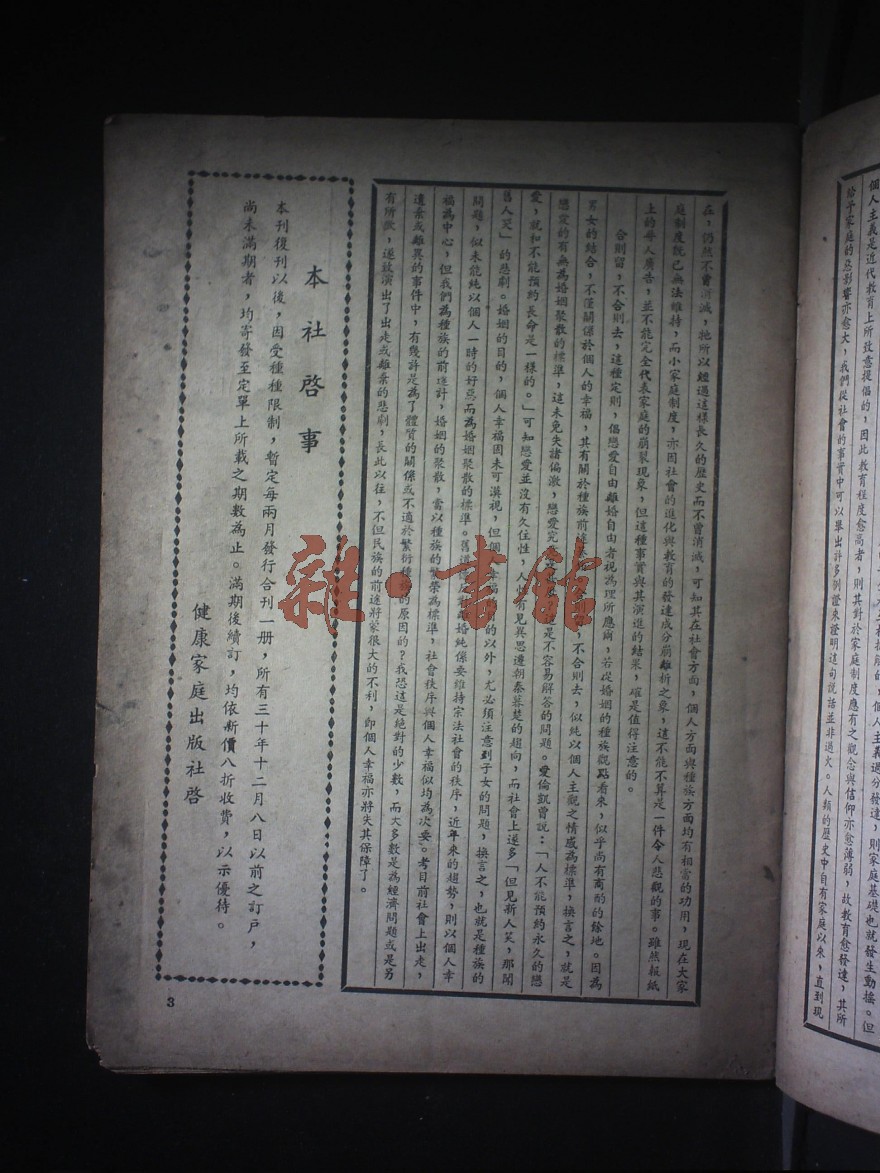 個人主義是近代教育上所致意提倡的，因此教育程度愈高者，則其對於家庭制度應有之觀念與信仰亦愈薄弱，故教育愈發達，其所
給予家庭的惡影響亦愈大，我們從社會的事實中可以舉出許多例證來證明這句說話並非過火。人類的歷史中自有家庭以來，直到現
在，仍然不曾消滅，牠所以經過這樣長久的歷史而不曾消滅，可知其在社會方面，個人方面與種族方面均有相當的功用，現在大家
庭制度既已無法維持，而小家庭制度，亦因社會的進化與教育的發達成分崩離析之象，這不能不算是一件令人悲觀的事。雖然報紙
上的尋人廣告，並不能完全代表家庭的崩裂現象，但這種事實與其演進的結果，確是值得注意的。
合則留，不合則去，這種定則，倡戀愛自由離婚自由者視為理所應爾，若從婚姻的種族觀點看來，似乎尚有商酌的餘地。因為
男女的結合，不僅關係於個人的幸福，其有關於種族前途
不合則去，似純以個人主觀之情感為標準，換言之，就是
戀愛的有無為婚姻聚散的標準，這未免失諸偏激，戀愛完
是不容易解答的問題。愛倫凱曾說：「人不能預約永久的戀
愛，就和不能預約長命是一樣的。」可知戀愛並沒有久住性，人
有見異思遷朝秦暮楚的趨向，而社會上遂多「但見新人笑，那聞
舊人哭」的悲劇。婚姻的目的，個人幸福固未可漠視，但個
幸福
的以外，尤必須注意到子女的問題，換言之，也就是種族的
問題，似未能純以個人一時的好惡而為婚姻聚散的標準。舊道
婚純係要維持宗法社會的秩序，近年來的趨勢，則以個人幸
福為中心，但我們為種族的前途計，婚姻的聚散，當以種族的繁榮為標準，社會秩序與個人幸福似均為次要。考目前社會上出走，
遺棄或離異的事件中，有幾許是為了體質的關係或不適於繁衍種
的原因的？我恐這是絕對的少數，而大多數是為經濟問題或是另
有所歡，遂致演出了出走或離棄的悲劇，長此以往，不但民族的前途將蒙很大的不利，即個人幸福亦將失其保障了。
本社啓事
本刊復刊以後，因受種種限制，暫定每兩月發行合刊一册，所有三十年十二月八日以前之訂戶，
尚未滿期者，均寄發至定單上所載之期數為止。滿期後續訂，均依新價八折收費，以示優待。
健康家庭出版社啓
3
雜·書館